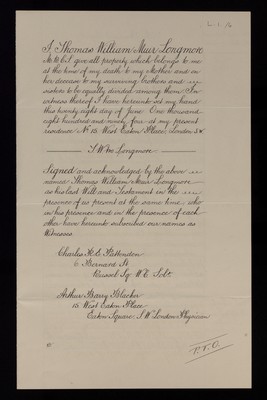 I Thomas William Muir Longmore
M.R.C.S. give all property which belongs to me
at the time of my death to my Mother and on
her decease to my surviving brothers and
sisters to be equally divided among them In
witness thereof I have hereunto set my hand
this twenty eight day of June One thousand
eight hundred and ninety four at my present
residence No 15 West Eaton Place, London S.W.
T W M Longmore
Signed and acknowledged by the above
named Thomas William Muir Longmore
as his last Will and Testament in the
presence of us present at the same time who
in his presence and in the presence of each
other have hereunto subscribed our names as
Witnesses
Charles H. E. Pattenden
Bernard St
Russel Sq W.C. Solr.
Arthur Barry Blacker
15 West Eaton Place
Eaton Square, S W London Physician
P.T.O.